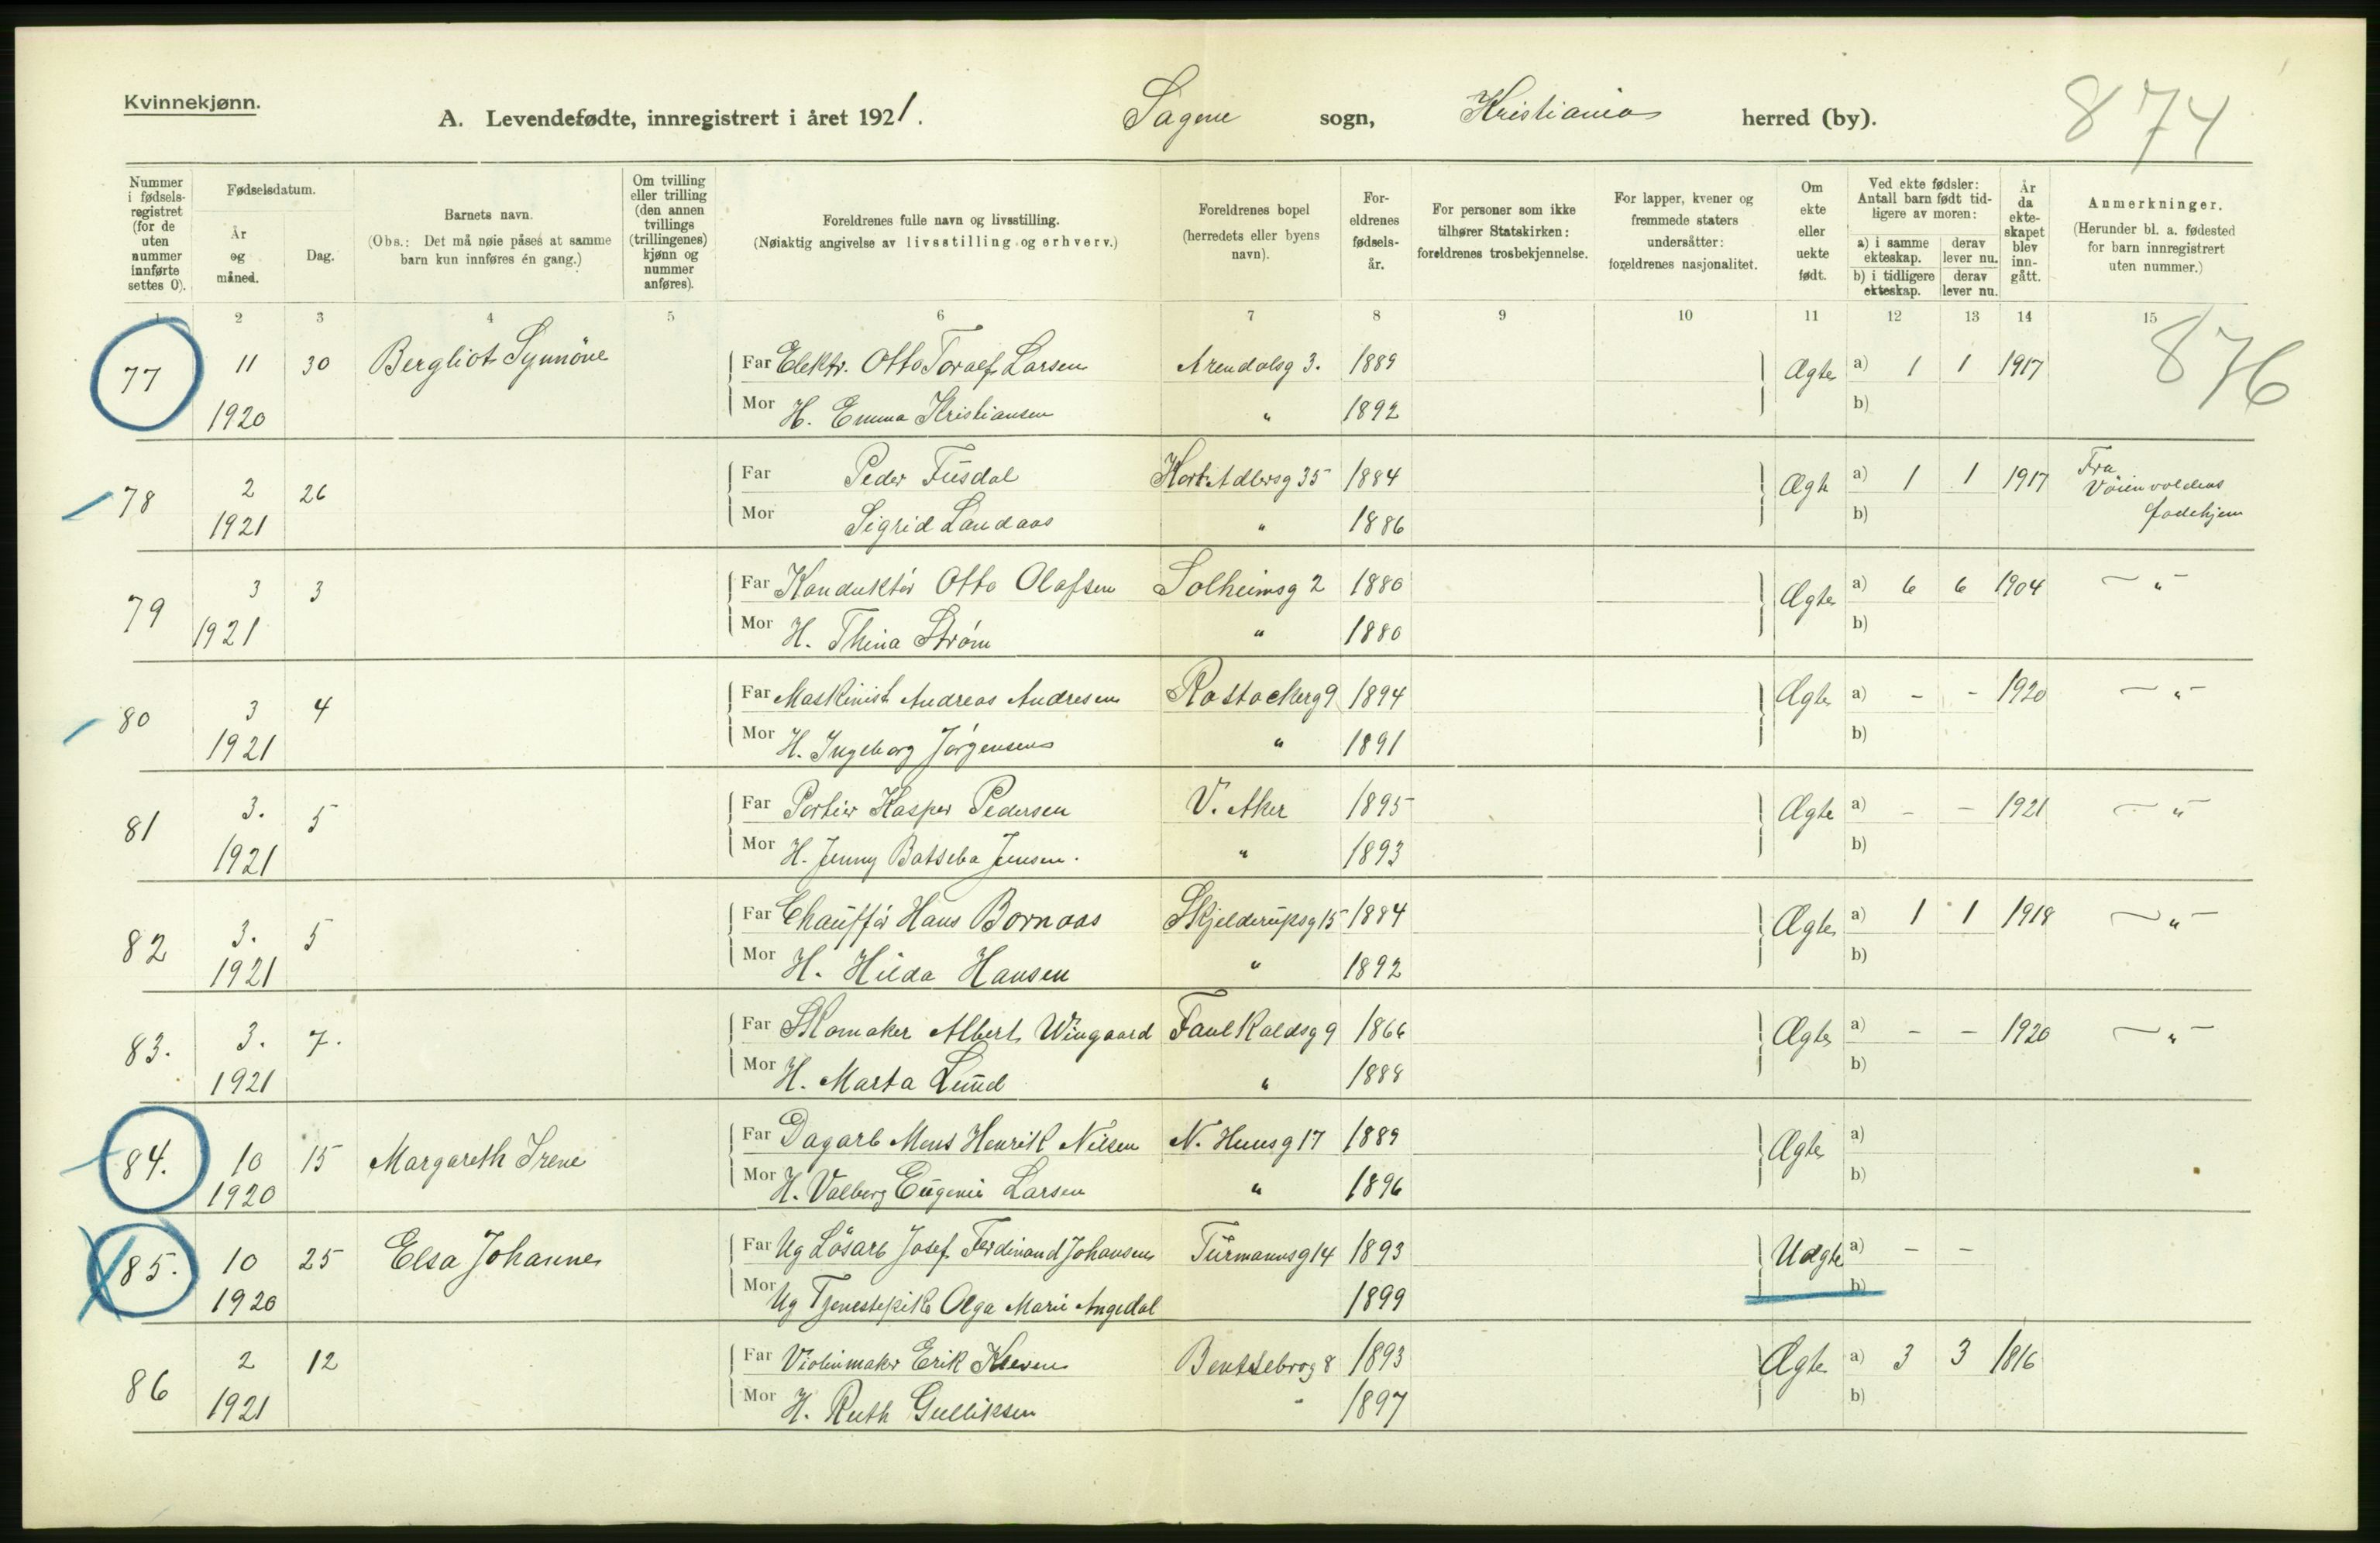 Kvinnekjønn.
A. Levendefødte, innregistrert i året 1921.
Sagene sogn, Kristiania herred (by).
874
Nummer i fødsels-registret (for de uten nummer innførte settes 0).
Fødselsdatum.
År og måned.
Dag.
Barnets navn.
(Obs.: Det må nøie påses at samme barn kun innføres én gang.)
Om tvilling eller trilling (den annen tvillings (trillingenes) kjønn og nummer anføres).
Foreldrenes fulle navn og livsstilling.
(Nøiaktig angivelse av livsstilling og erhverv.)
Foreldrenes bopel (herredets eller byens navn).
For-eldrenes fødsels-år.
For personer som ikke tilhører Statskirken: foreldrenes trosbekjennelse.
For lapper, kvener og fremmede staters undersåtter: foreldrenes nasjonalitet.
Om ekte eller uekte født.
Ved ekte fødsler: Antall barn født tidligere av moren:
a) i samme ekteskap.
derav lever nu.
b) i tidligere ekteskap.
derav lever nu.
År da ekte-skapet blev inn-gått.
Anmerkninger.
(Herunder bl. a. fødested for barn innregistrert uten nummer.)
1 2 3 4 5 6 7 8 9 10 11 12 13 14 15
77 11 30 Bergliot Synnöve Far Elektr. Otto Toralf Larsen Arendalsg 3. 1889 Ægte a) 1 1 1917 876
1920 Mor H. Emma Kristiansen " 1892 b)
78 2 26 Far Peder Fusdal Kort Adlersg 35 1884 Ægte a) 1 1 1917 Fra Vöienvoldens fødehjem
1921 Mor Sigrid Landaas " 1886 b)
79 3 3 Far Konduktör Otto Olafsen Solheimsg 2 1880 Ægte a) 6 6 1904 — " —
1921 Mor H. Thina Ström " 1880 b)
80 3 4 Far Maskinist Andreas Andresen Rostockerg 9 1894 Ægte a) - - 1920 — " —
1921 Mor H. Ingeborg Jörgensen " 1891 b)
81 3. 5 Far Portier Kasper Pedersen V. Aker 1895 Ægte a) - - 1921 — " —
1921 Mor H. Jenny Batseba Jensen. " 1893 b)
82 3. 5 Far Chaufför Hans Bornaas Skjelderupsg 15 1884 Ægte a) 1 1 1918 — " —
1921 Mor H. Hilda Hansen " 1892 b)
83. 3. 7. Far Skomaker Albert Wingaard Fauchaldsg 9 1866 Ægte a) - - 1920 — " —
1921 Mor H. Marta Lund " 1888 b)
84. 10 15 Margareth Irene Far Dagarb Mens Henrik Nilsen N. Huusg 17 1889 Ægte a)
1920 Mor H. Valborg Eugenie Larsen " 1896 b)
85. 10 25 Elsa Johanne Far Ug Lösarb Josef Ferdinand Johansen Türmannsg 14 1893 Uægte a) - -
1920 Mor Ug Tjenestepike Olga Marie Angedal 1899 b)
86 2 12 Far Violinmaker Erik Kleven Bentsebrog 8 1893 Ægte a) 3 3 1816
1921 Mor H. Ruth Gulliksen " 1897 b)